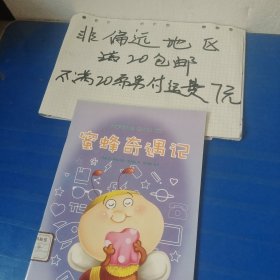 非偏远地区
满20包邮
不满20需另付运费7元
蜜蜂奇遇记